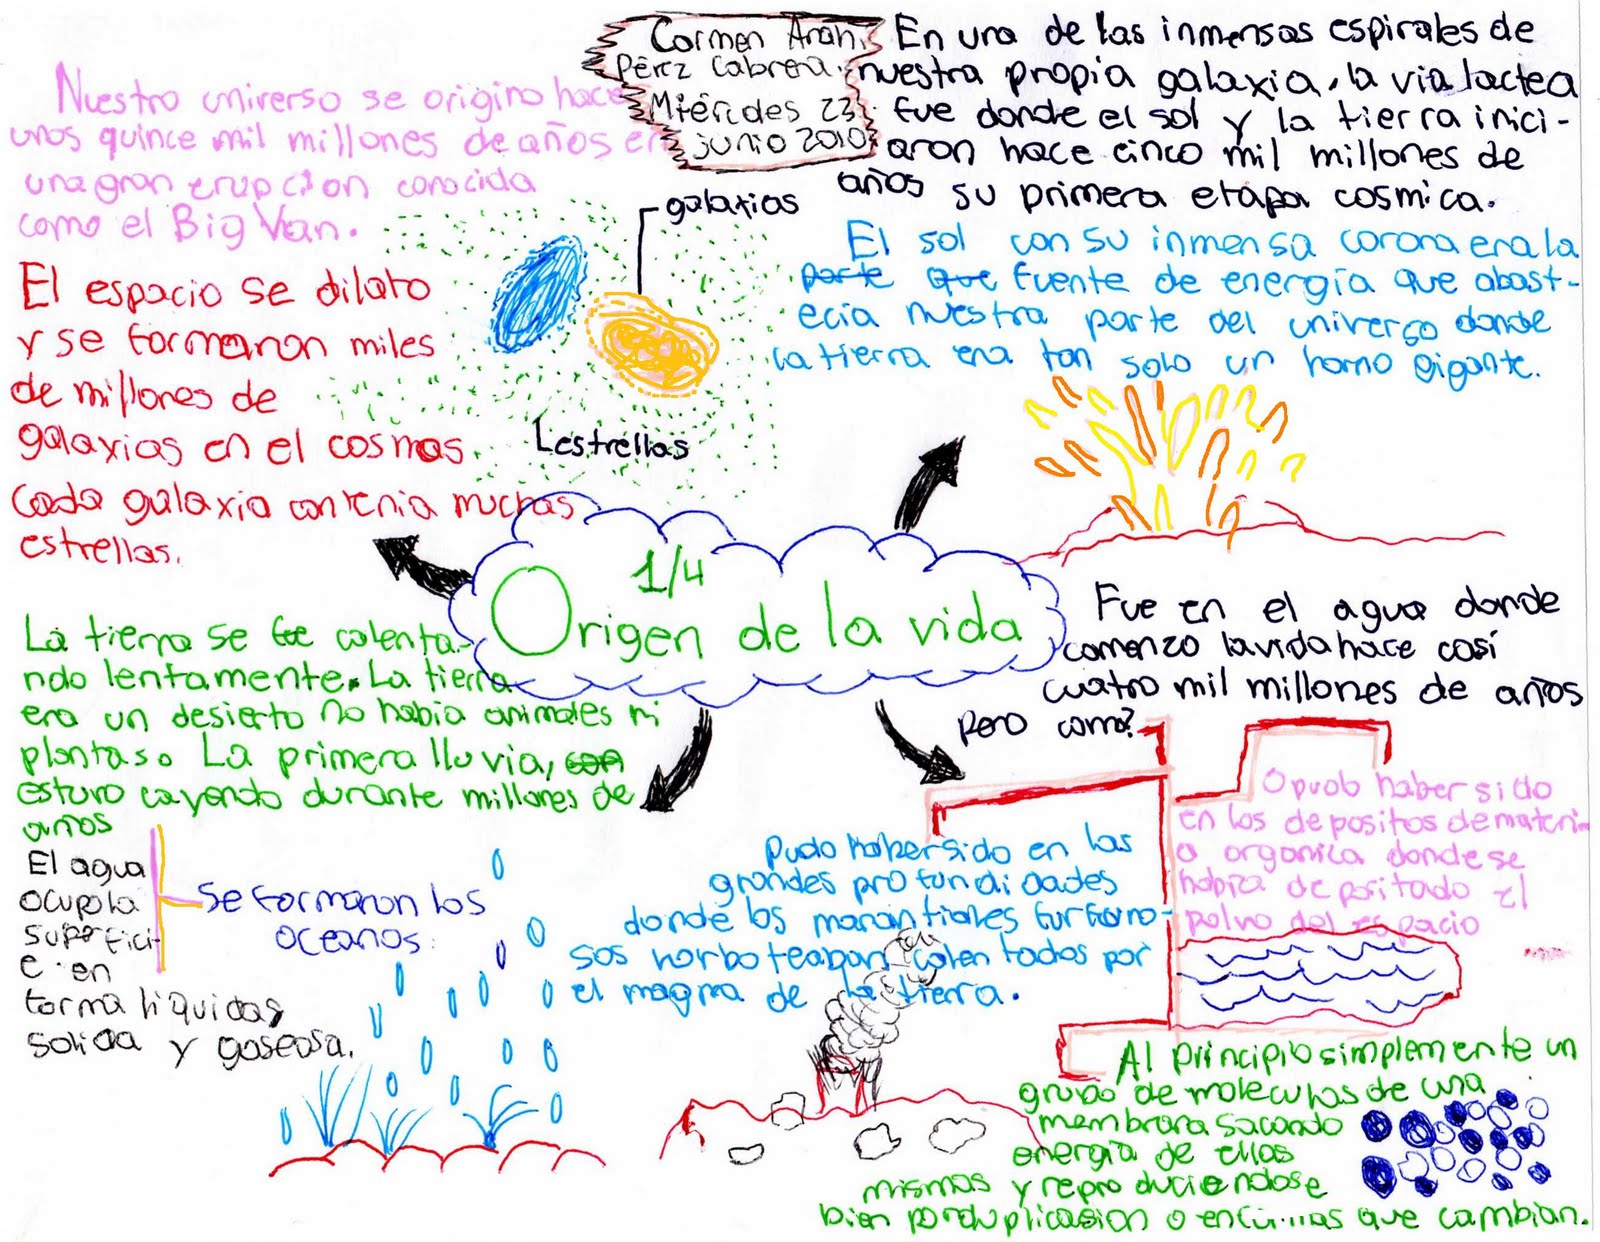 Carmen Anahi
Pérez Cabrera.
Miércoles 23
junio 2010
Nuestro universo se origino hace
unos quince mil millones de años en
una gran erupcion conocida
como el Big Van.
El espacio se dilato
y se formaron miles
de millones de
galaxias en el cosmos
cada galaxia contenia muchas
estrellas.
galaxias
estrellas
En una de las inmensas espirales de
nuestra propia galaxia, la via lactea
fue donde el sol y la tierra inici-
aron hace cinco mil millones de
años su primera etapa cosmica.
El sol con su inmensa corona era la
parte que fuente de energía que abast-
ecia nuestra parte del universo donde
la tierra era tan solo un horno gigante.
1/4
Origen de la vida
La tierra se fue calenta-
ndo lentamente. La tierra
era un desierto no habia animales ni
plantas. La primera lluvia, con
estuvo cayendo durante millones de
años
El agua
ocupo la
superfici-
e en
forma liquidas,
solida y gaseosa.
Se formaron los
oceanos.
Fue en el agua donde
comenzo la vida hace casí
cuatro mil millones de años
pero como?
Pudo haber sido en las
grandes profundidades
donde los manantiales
sos calentados por
el magma de la tierra.
O pudo haber sido
en los depositos de materi-
a organica donde se
habia depositado el
polvo del espacio
Al principio simplemente un
grupo de moleculas de una
membrana sacando
energia de ellas
mismas y reproduciendose
bien por duplicasion o que cambian.